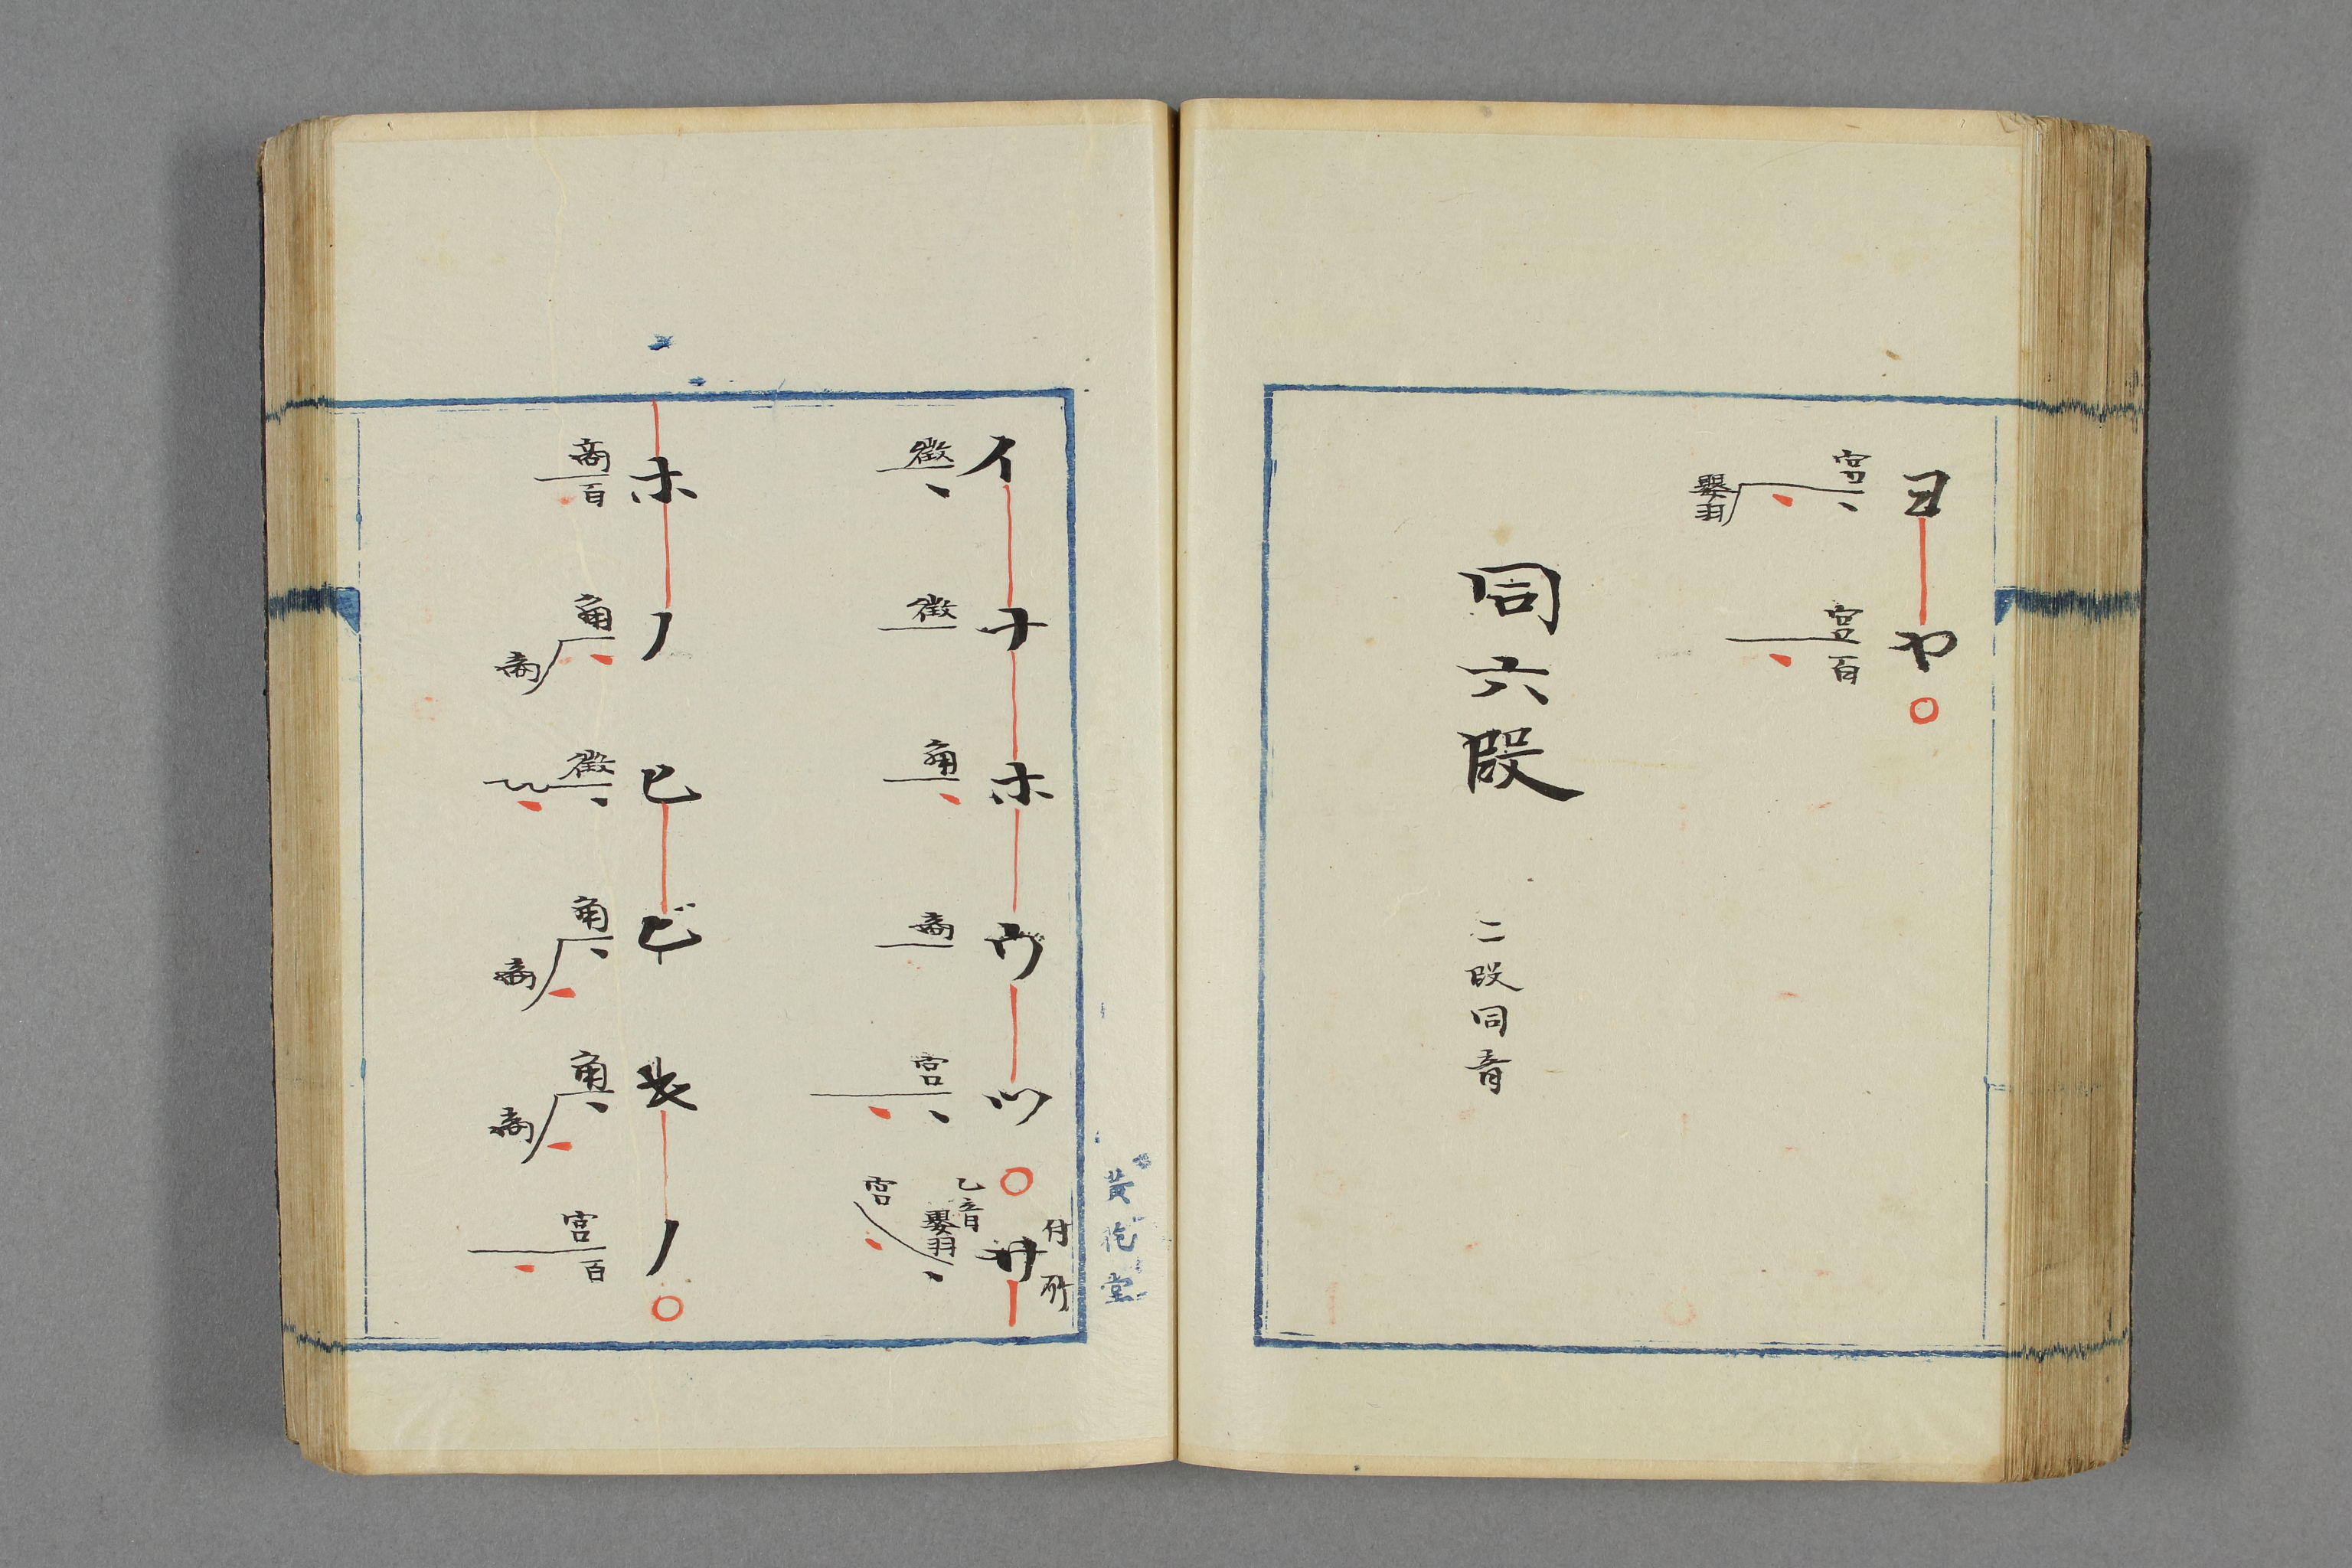 ヨヤ
宮 宮百
嬰羽
同六段 二段同音
付所
イナホウツ サ
乙音
徴 徴 角 商 宮 嬰羽
宮
ホノ已ビキノ
商百 角 徴 角 角 宮百
商 商 商